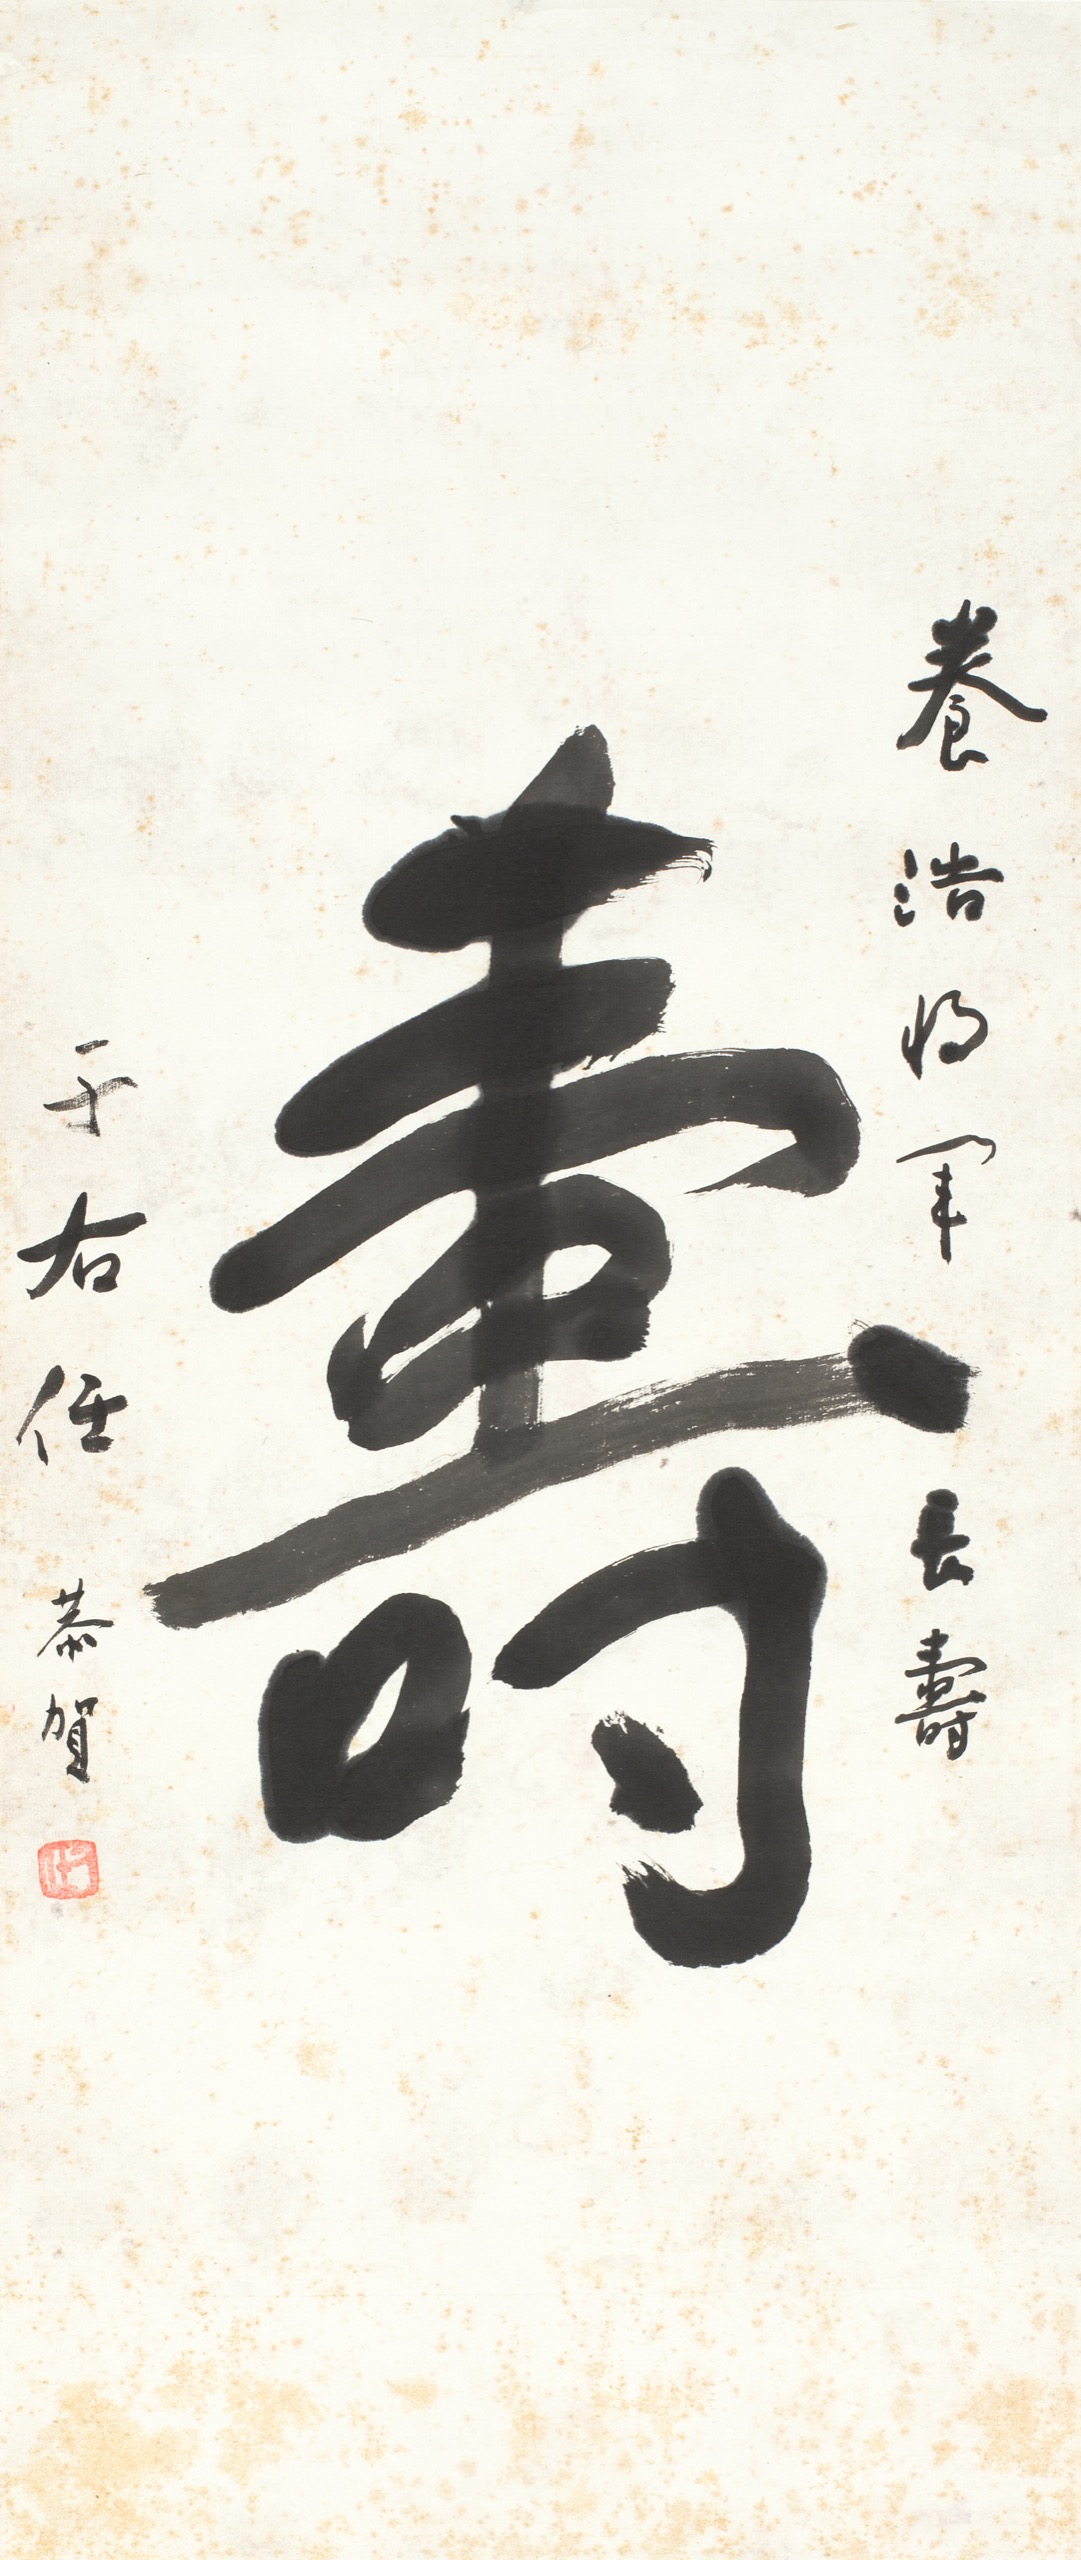 養浩將軍長壽
壽
于右任恭賀